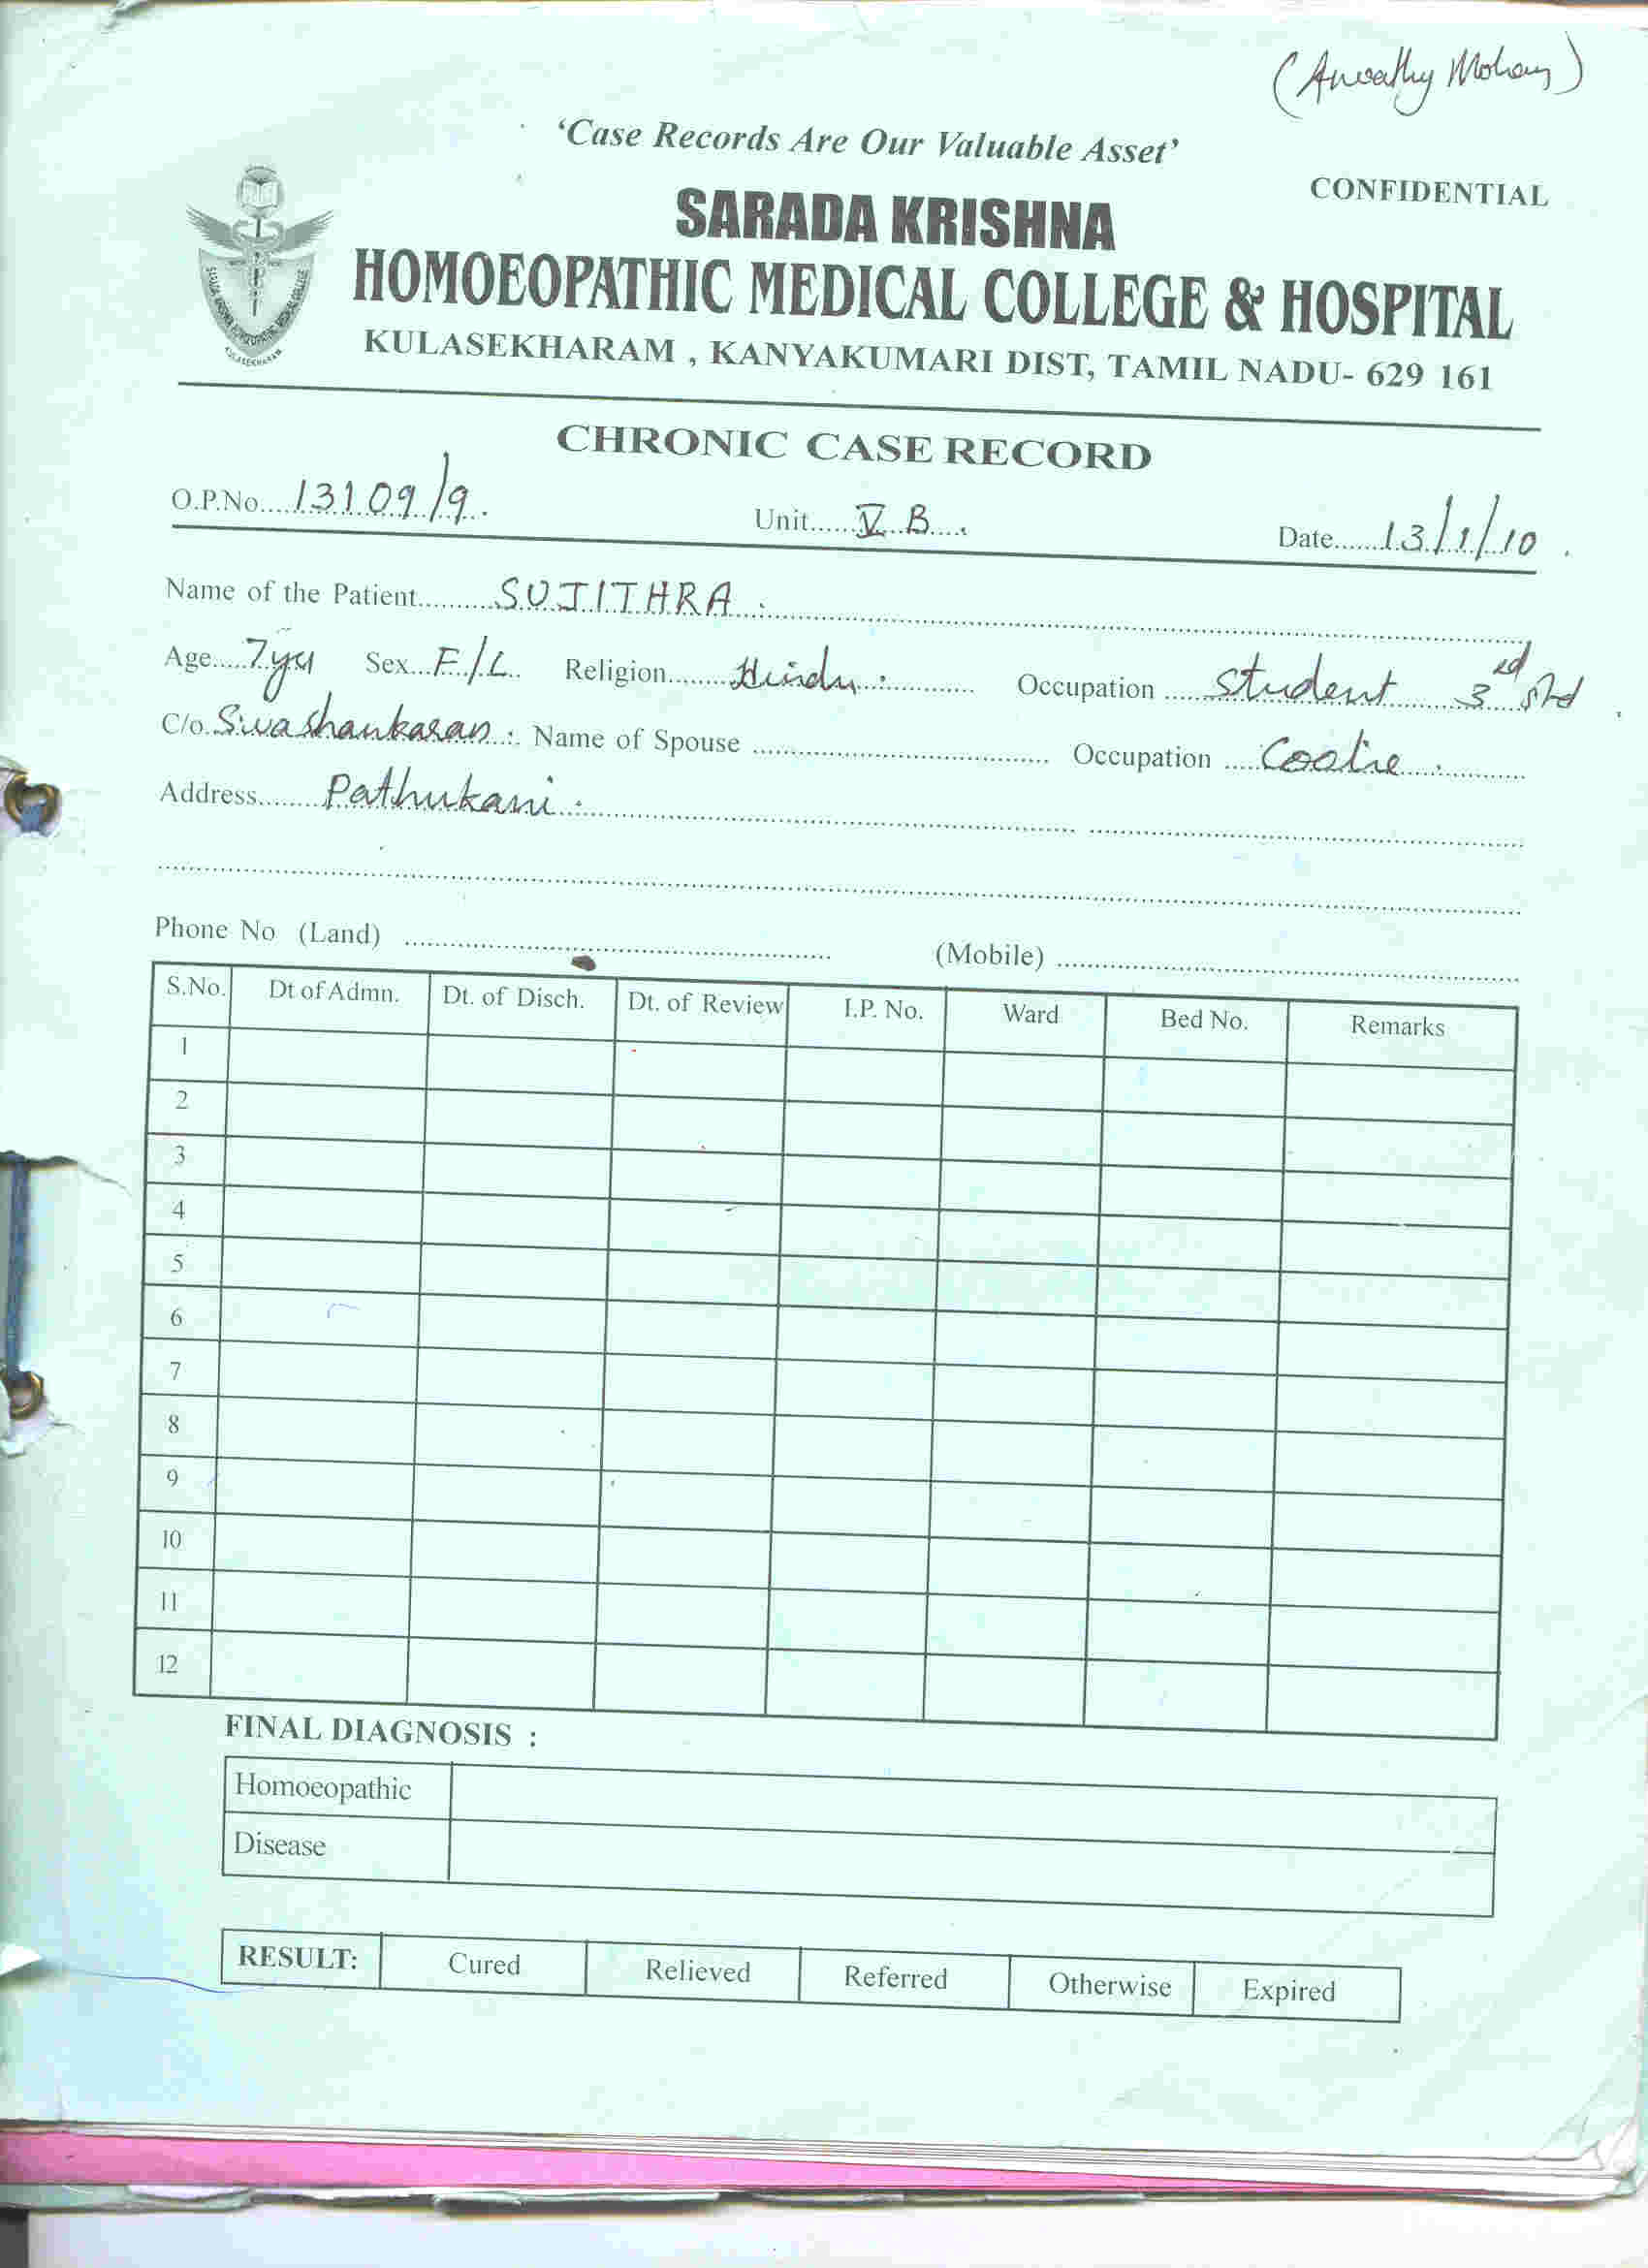 (Aswathy Mohan)
'Case Records Are Our Valuable Asset'
CONFIDENTIAL
SARADA KRISHNA
HOMOEOPATHIC MEDICAL COLLEGE & HOSPITAL
KULASEKHARAM , KANYAKUMARI DIST, TAMIL NADU- 629 161
KULASEKHARAM
CHRONIC CASE RECORD
O.P.No....13109/9. Unit......V B..... Date.......13/1/10.
Name of the Patient..........SUJITHRA.
Age.....7yrs Sex...F/C.. Religion........Hindu. Occupation .....Student 3rd std.
C/o.Sivashankaran. Name of Spouse ........ Occupation .....Coolie.
Address.......Pathukani.
Phone No (Land) ........ (Mobile) ........
S.No. Dt of Admn. Dt. of Disch. Dt. of Review I.P. No. Ward Bed No. Remarks
1
2
3
4
5
6
7
8
9
10
11
12
FINAL DIAGNOSIS :
Homoeopathic
Disease
RESULT: Cured Relieved Referred Otherwise Expired